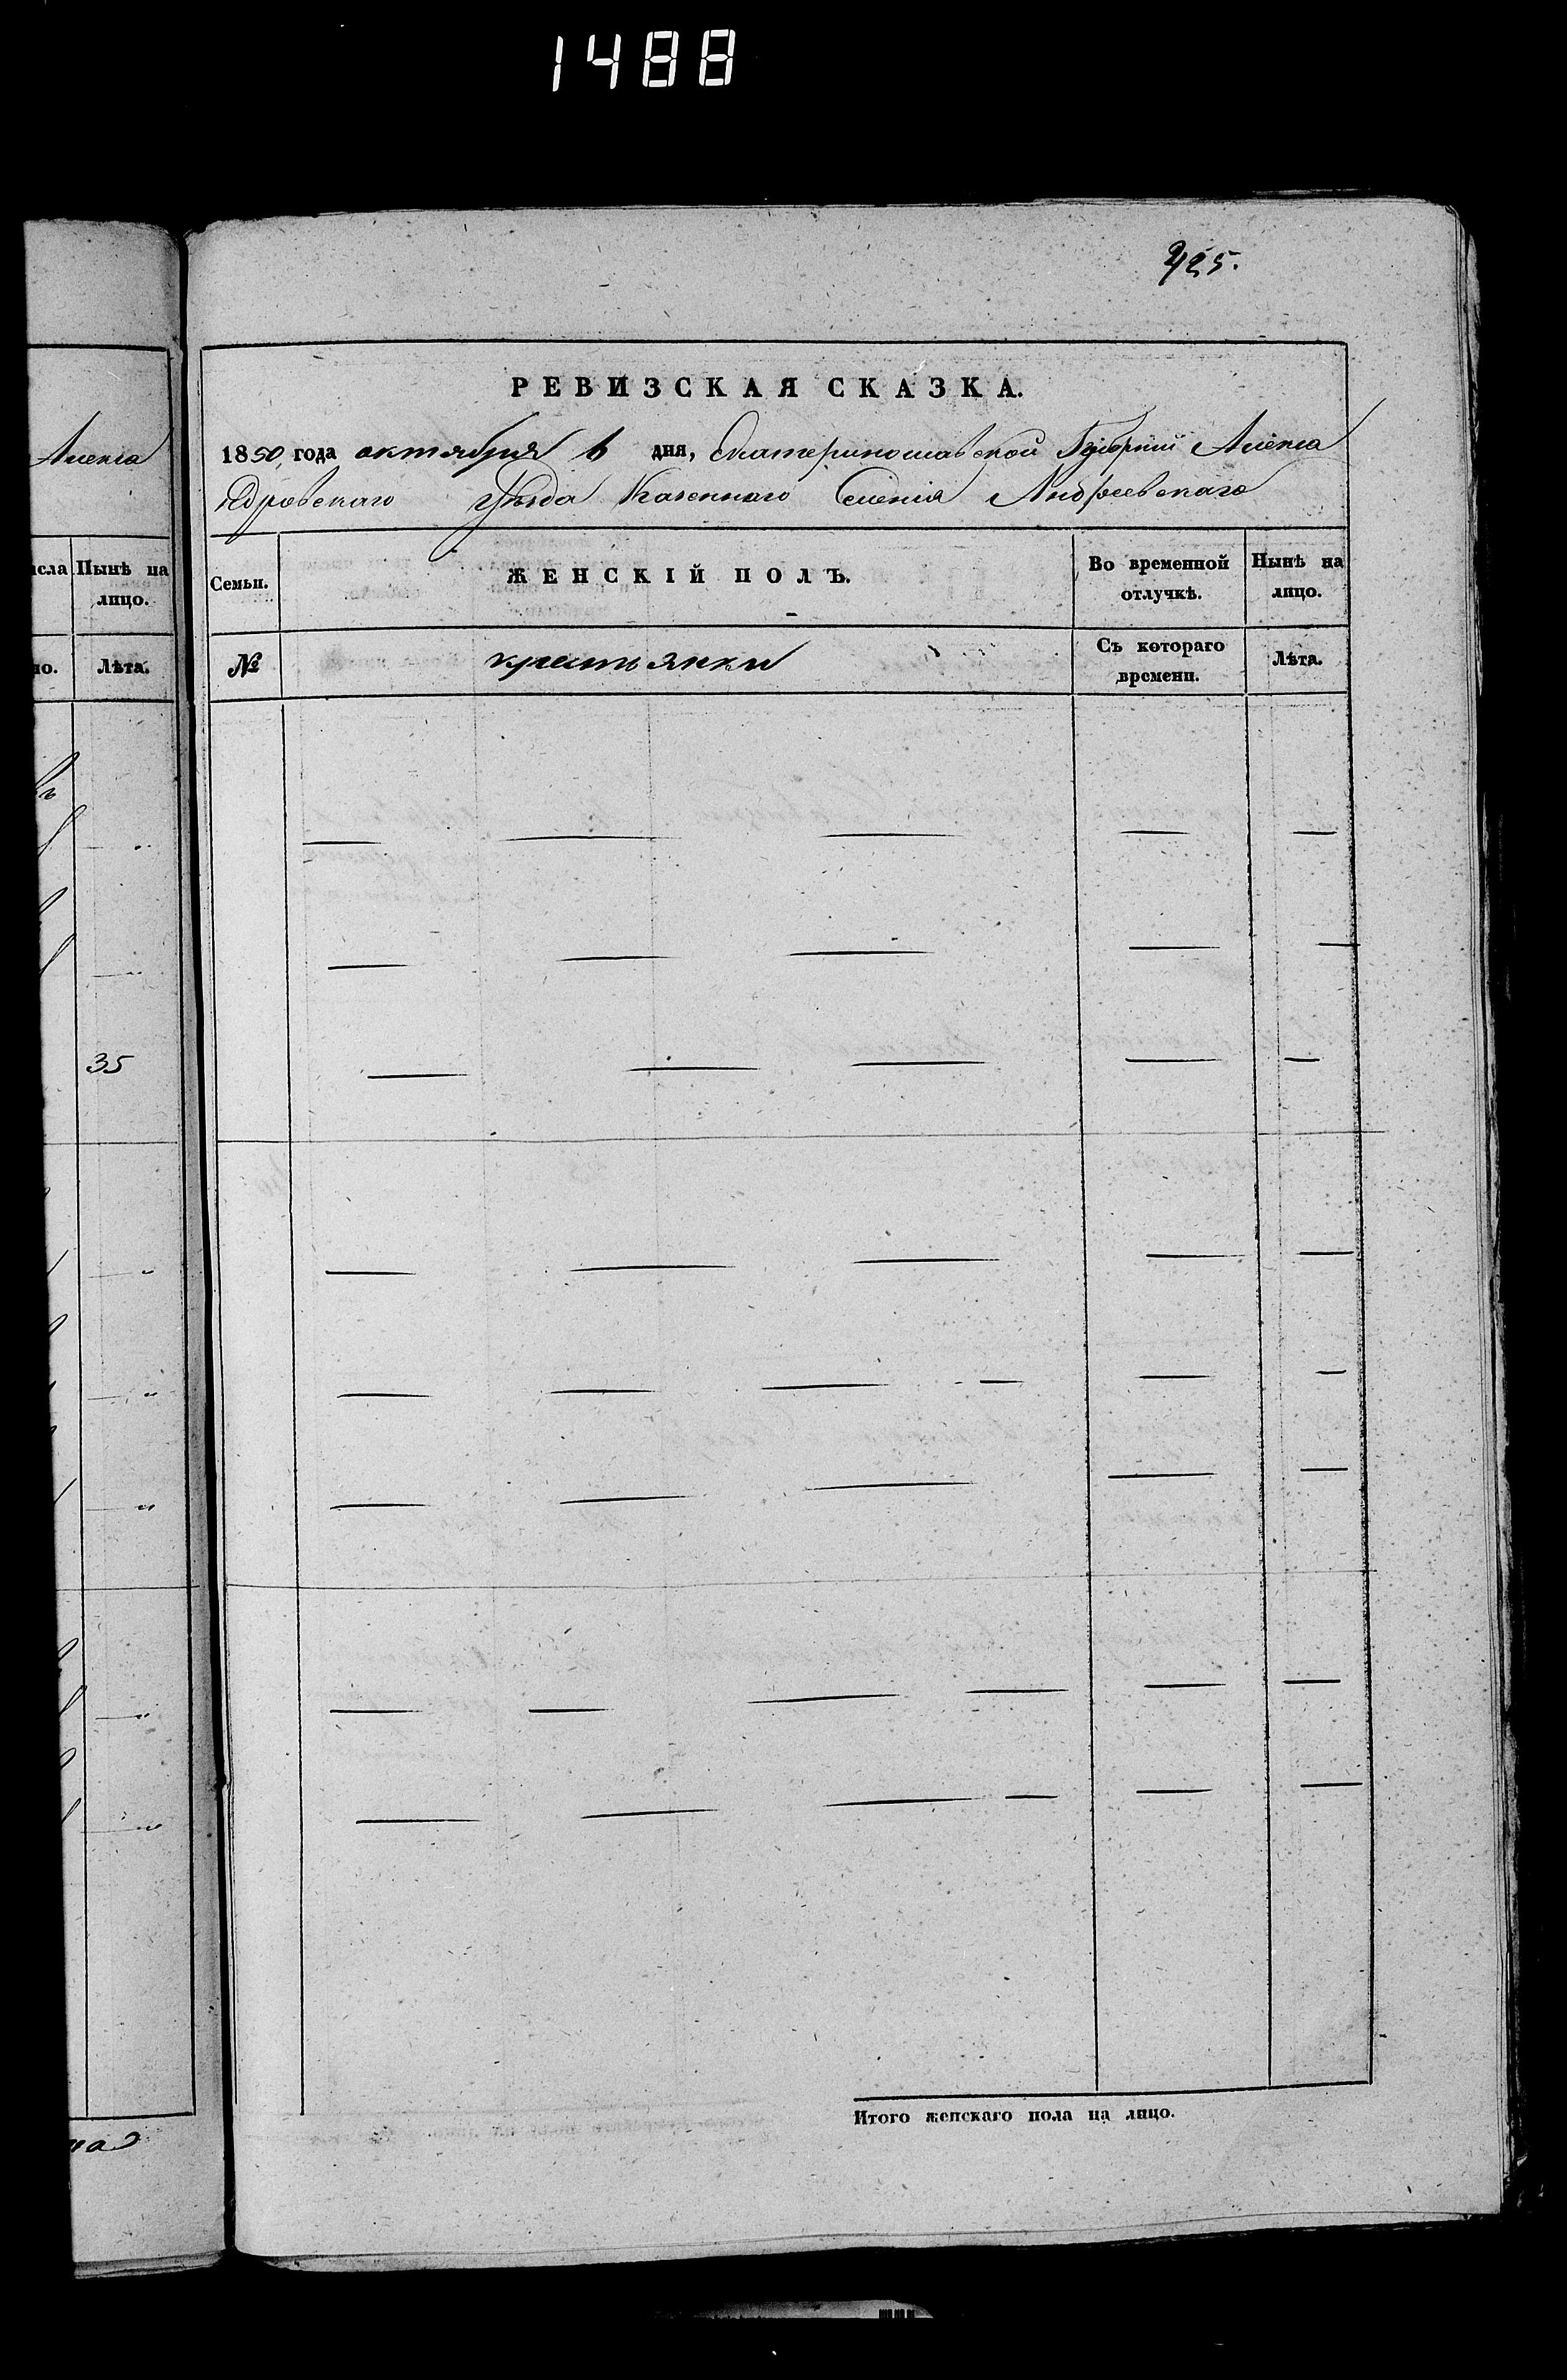 1488
425.
РЕВИЗСКАЯ СКАЗКА.
1850 года октября 6 дня, Екатеринославской Губернiи Алекса
ндровскаго Уѣзда Казеннаго Селенiя Андреевскаго
Алекса
исла Нынѣ на лицо.
Семьи. ЖЕНСКІЙ ПОЛЪ. Во временной отлучкѣ. Нынѣ на лицо.
но. Лѣта.
№ крестьянки Съ котораго времени. Лѣта.
35
Итого женскаго пола на лицо.